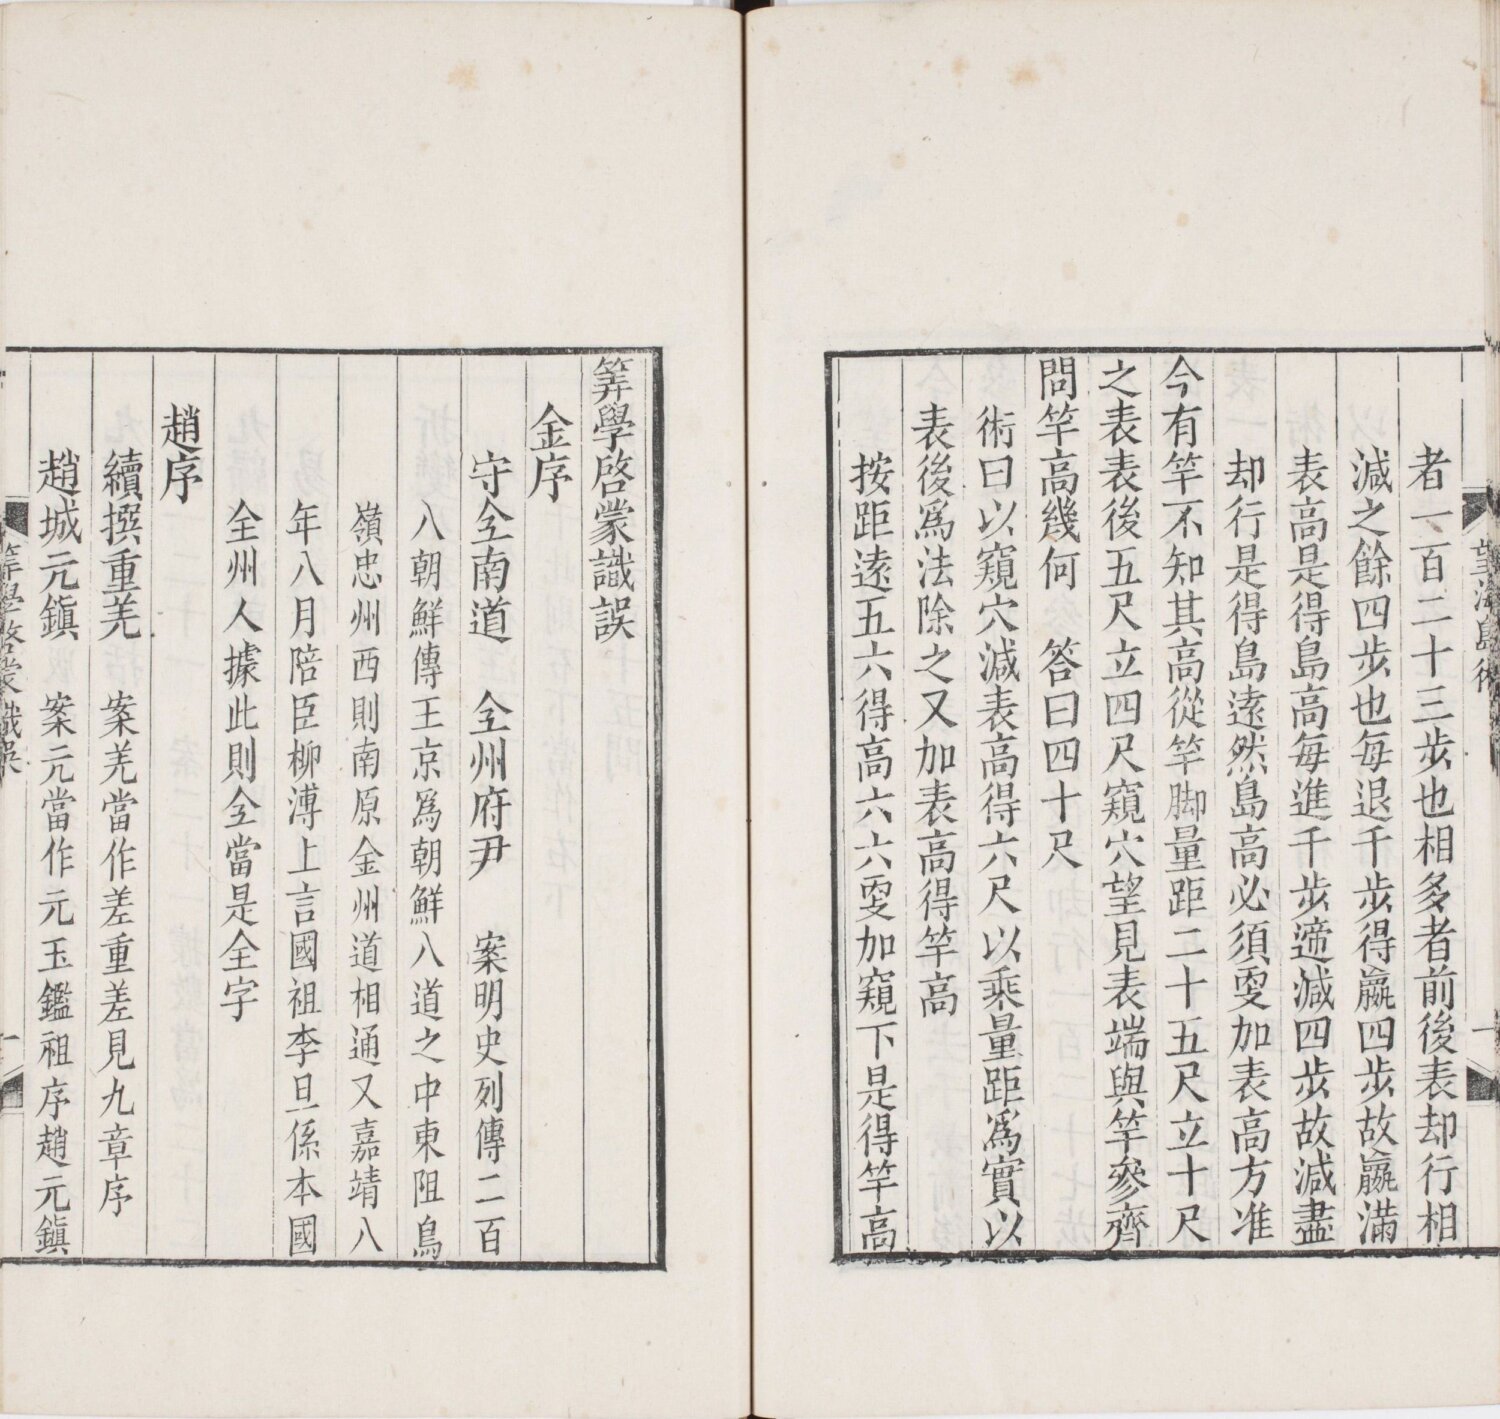 者一百二十三步也相多者前後表却行相
減之餘四步也每退千步得嬴四步故嬴滿
表高是得島高每進千步遞減四步故減盡
却行是得島遠然島高必須更加表高方准
今有竿不知其高從竿脚量距二十五尺立十尺
之表表後五尺立四尺窺穴望見表端與竿參齊
問竿高幾何　答曰四十尺
術曰以窺穴減表高得六尺以乘量距為實以
表後為法除之又加表高得竿高
按距遠五六得高六六更加窺下是得竿高
筭學啓蒙識誤
金序
守仝南道　仝州府尹　案明史列傳二百
八朝鮮傳王京為朝鮮八道之中東阻鳥
嶺忠州西則南原金州道相通又嘉靖八
年八月陪臣柳溥上言國祖李旦係本國
全州人據此則仝當是全字
趙序
續撰重羌　案羌當作差重差見九章序
趙城元鎭　案元當作元玉鑑祖序趙元鎭